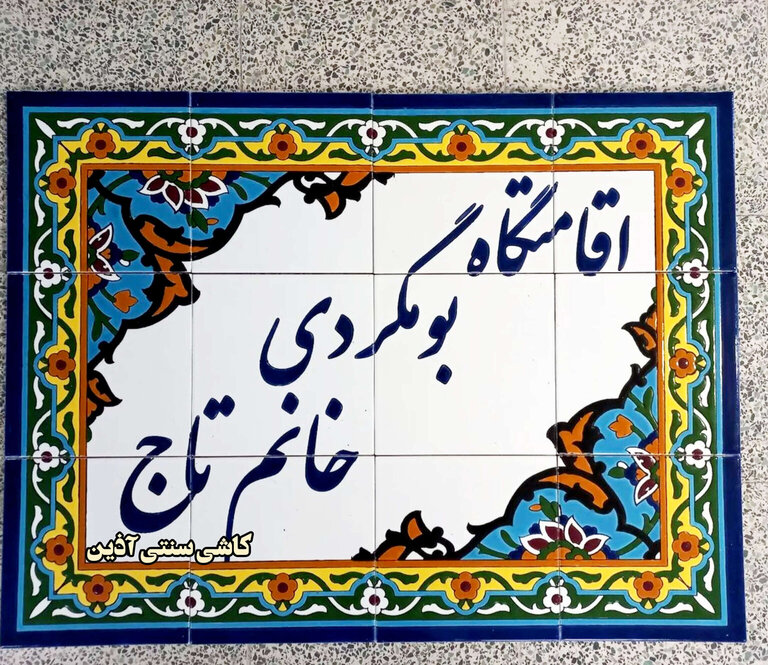 اقامتگاه
بومگردی
خانم تاج
کاشی سنتی آذین